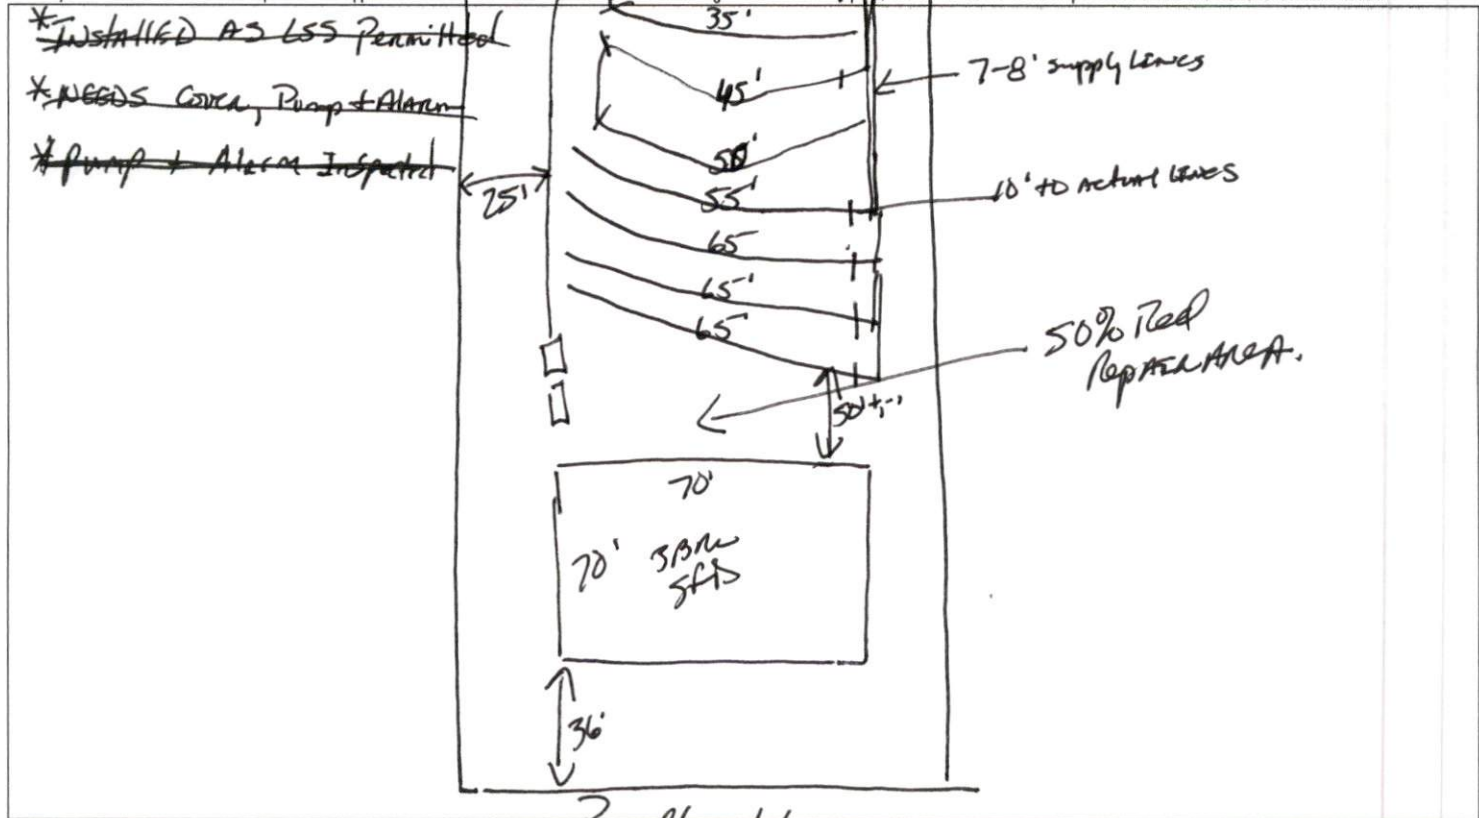 *INSTALLED AS LSS Permitted
*NEEDS Cover, Pump + Alarm
*Pump + Alarm Inspected
35'
45'
7-8' supply Lines
50'
25'
55'
10' to Actual Lines
65
65'
65'
50% Red
Repair Area.
50'+,-'
70'
70' 3BRM
SFD
36'